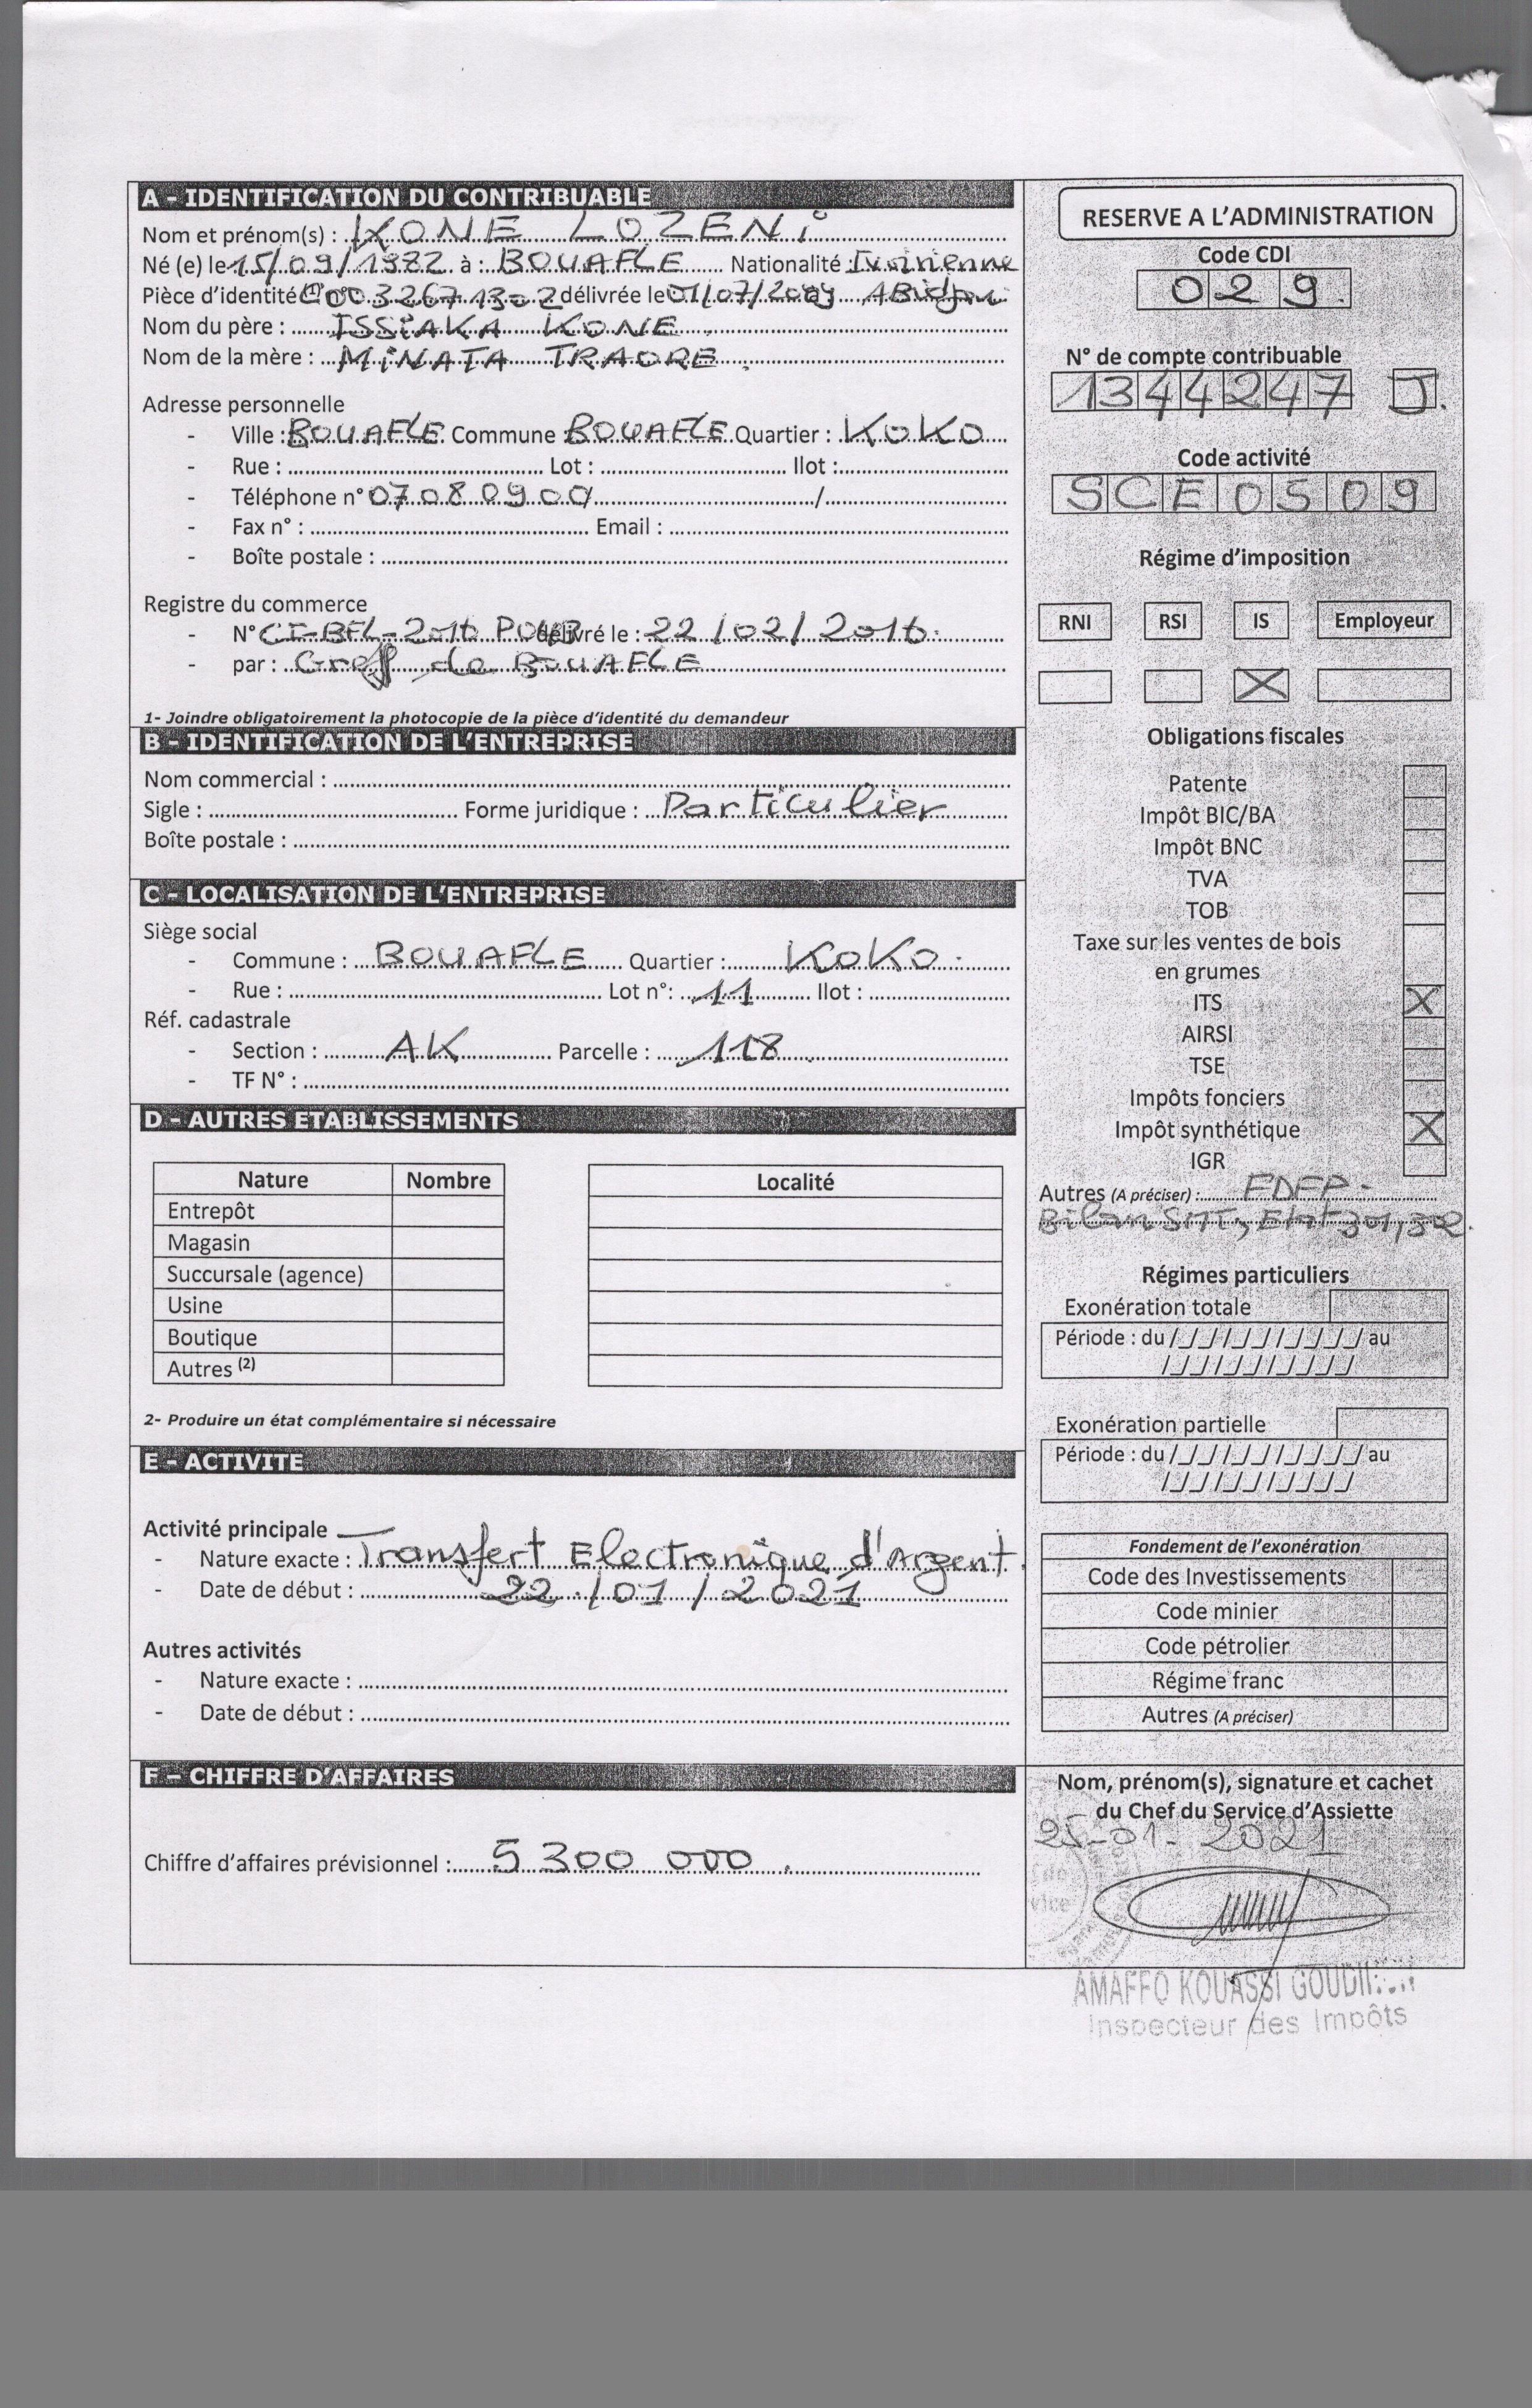 A - IDENTIFICATION DU CONTRIBUABLE
Nom et prénom(s) : KONE LOZENi
Né (e) le 15/09/1982 à : BOUAFLE Nationalité : Ivoirienne
Pièce d'identité (1) C 003267 1302 délivrée le 01/07/2009 ABidjan
Nom du père : ISSiAKA KONE
Nom de la mère : MiNATA TRAORE
Adresse personnelle
- Ville : BOUAFLE Commune BOUAFLE Quartier : KOKO
- Rue : Lot : Ilot :
- Téléphone n° 07080900/ /
- Fax n° : Email :
- Boîte postale :
Registre du commerce
- N° CI-BFL-2016 délivré le : 22/02/2016
- par : Greffe de BOUAFLE
1- Joindre obligatoirement la photocopie de la pièce d'identité du demandeur
B - IDENTIFICATION DE L'ENTREPRISE
Nom commercial :
Sigle : Forme juridique : Particulier
Boîte postale :
C - LOCALISATION DE L'ENTREPRISE
Siège social
- Commune : BOUAFLE Quartier : KOKO
- Rue : Lot n°: 11 Ilot :
Réf. cadastrale
- Section : AK Parcelle : 118
- TF N° :
D - AUTRES ETABLISSEMENTS
Nature Nombre Localité
Entrepôt
Magasin
Succursale (agence)
Usine
Boutique
Autres (2)
2- Produire un état complémentaire si nécessaire
E - ACTIVITE
Activité principale
- Nature exacte : Transfert Electronique d'Argent
- Date de début : 22/01/2021
Autres activités
- Nature exacte :
- Date de début :
F – CHIFFRE D'AFFAIRES
Chiffre d'affaires prévisionnel : 5 300 000
RESERVE A L'ADMINISTRATION
Code CDI
029
N° de compte contribuable
1344247 J
Code activité
SCE0509
Régime d'imposition
RNI RSI IS Employeur
X
Obligations fiscales
Patente
Impôt BIC/BA
Impôt BNC
TVA
TOB
Taxe sur les ventes de bois
en grumes
ITS X
AIRSI
TSE
Impôts fonciers
Impôt synthétique X
IGR
Autres (A préciser) : FDFP -
Bilan SMT, Etat 301, 302.
Régimes particuliers
Exonération totale
Période : du /_/_/ /_/_/ /_/_/_/_/ au
/_/_/ /_/_/ /_/_/_/_/
Exonération partielle
Période : du /_/_/ /_/_/ /_/_/_/_/ au
/_/_/ /_/_/ /_/_/_/_/
Fondement de l'exonération
Code des Investissements
Code minier
Code pétrolier
Régime franc
Autres (A préciser)
Nom, prénom(s), signature et cachet
du Chef du Service d'Assiette
25-01-2021
AMAFFO KOUASSI
Inspecteur des Impôts